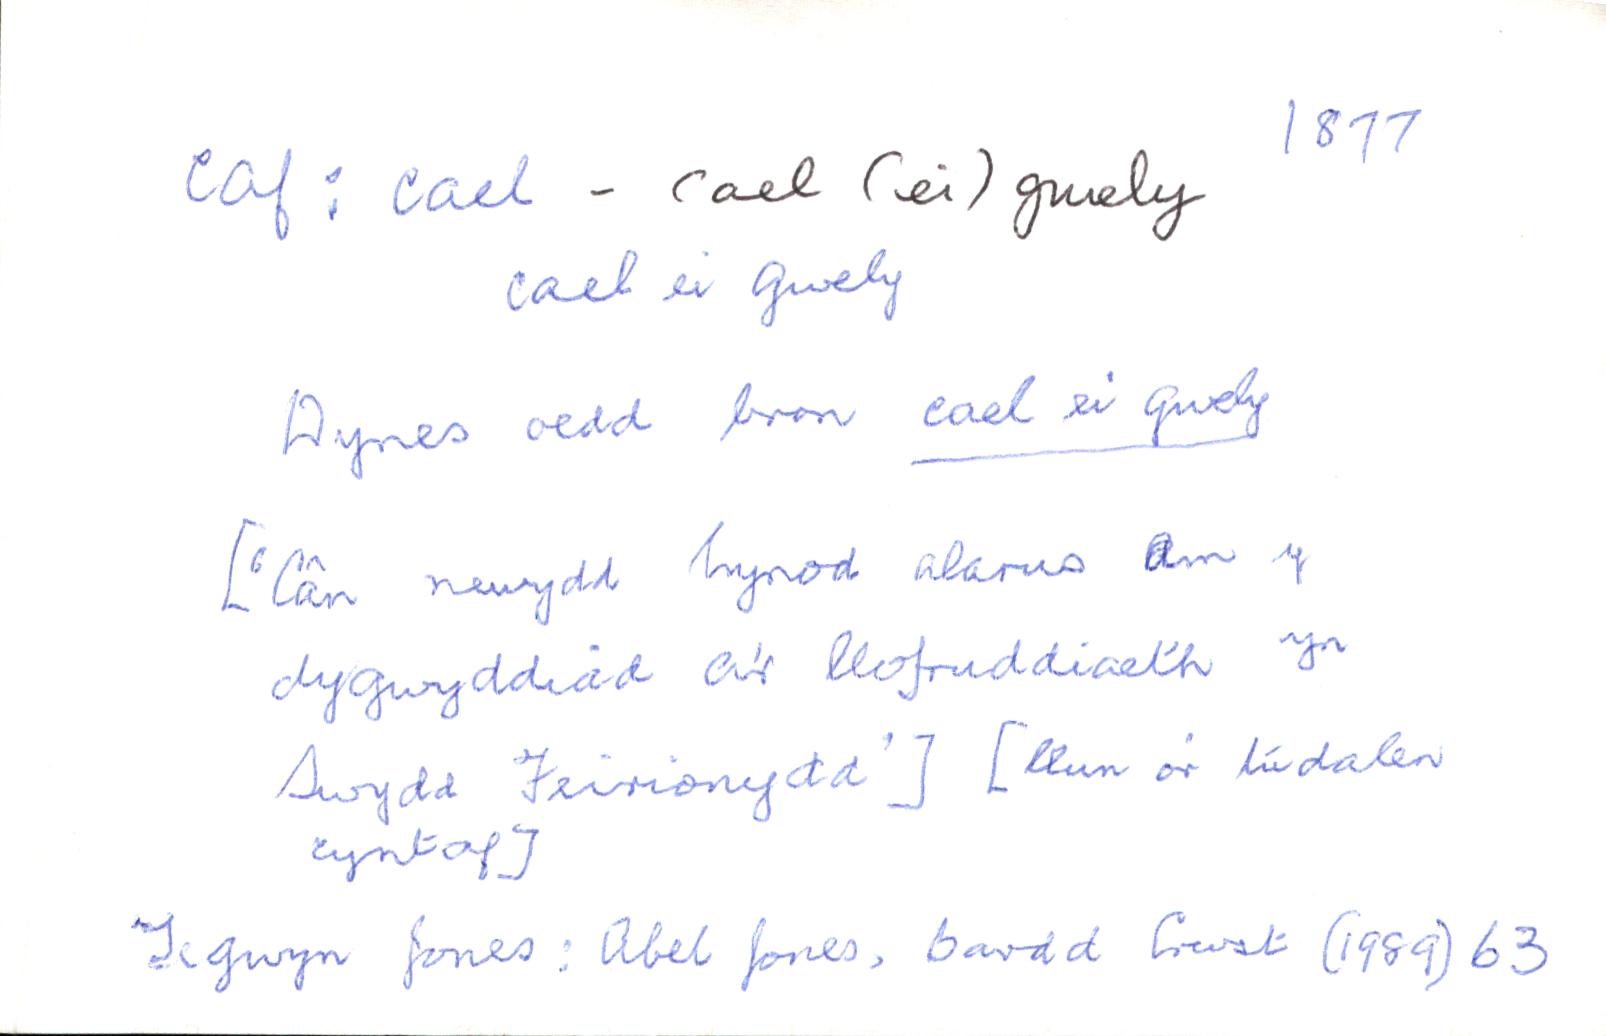 1877
caf: cael - cael (ei) gwely
cael ei gwely
Dynes oedd bron cael ei gwely
['Cân newydd hynod alarus am y
dygwyddiad a'r llofruddiaeth yn
Swydd Feirionydd'] [llun o'r tudalen
cyntaf]
Tegwyn Jones: Abel Jones, Bardd Crwst (1989) 63